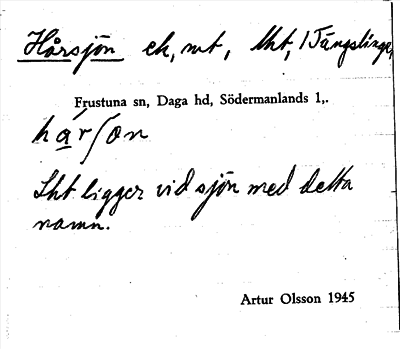 Hårsjön ek, mt, lht, 1 Tängslinge,
Frustuna sn, Daga hd, Södermanlands l,.
hárʃon
Lht ligger vid sjön med detta
namn.
Artur Olsson 1945